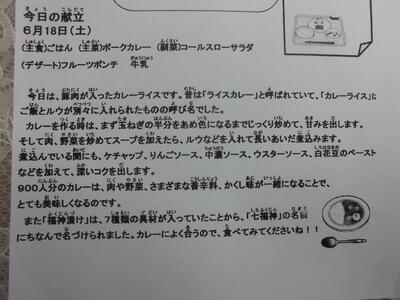 今日の献立
6月18日(土)
(主食)ごはん (主菜)ポークカレー (副菜)コールスローサラダ
(デザート)フルーツポンチ 牛乳
今日は、豚肉が入ったカレーライスです。昔は「ライスカレー」と呼ばれていて、「カレーライス」は
ご飯とルウが別々に入れられたものの呼び名でした。
カレーを作る時は、まず玉ねぎの半分をあめ色になるまでじっくり炒めて、甘みを出します。
そして肉、野菜を炒めてスープを加えたら、ルウなどを入れて長いあいだ煮込みます。
煮込んでいる間にも、ケチャップ、りんごソース、中濃ソース、ウスターソース、白花豆のペースト
などを加えて、深いコクを出します。
900人分のカレーは、肉や野菜、さまざまな香辛料、かくし味が一緒になることで、
とても美味しくなるのです。
また「福神漬け」は、7種類の具材が入っていたことから、「七福神」の名前
にちなんで名づけられました。カレーによく合うので、食べてみてくださいね!!